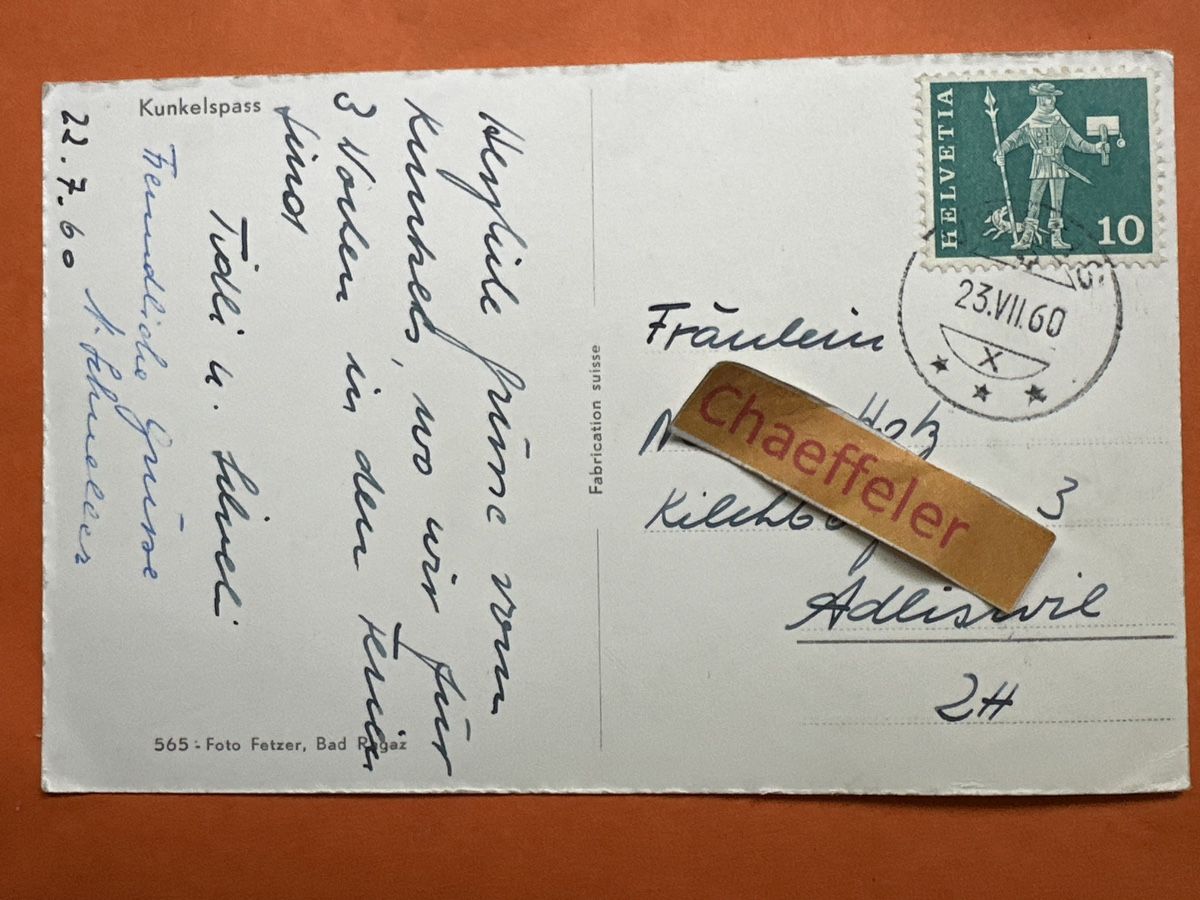 Kunkelspass
22.7.60
Herzliche Grüsse vom
Kunkels, wo wir für
3 Wochen in den Ferien
sind
Tidli u. Silveli
Freundliche Grüsse
565 - Foto Fetzer, Bad Ragaz
Fabrication suisse
HELVETIA
10
23.VII.60
X
Fräulein
Hotz
3
Adliswil
ZH
Chaeffeler